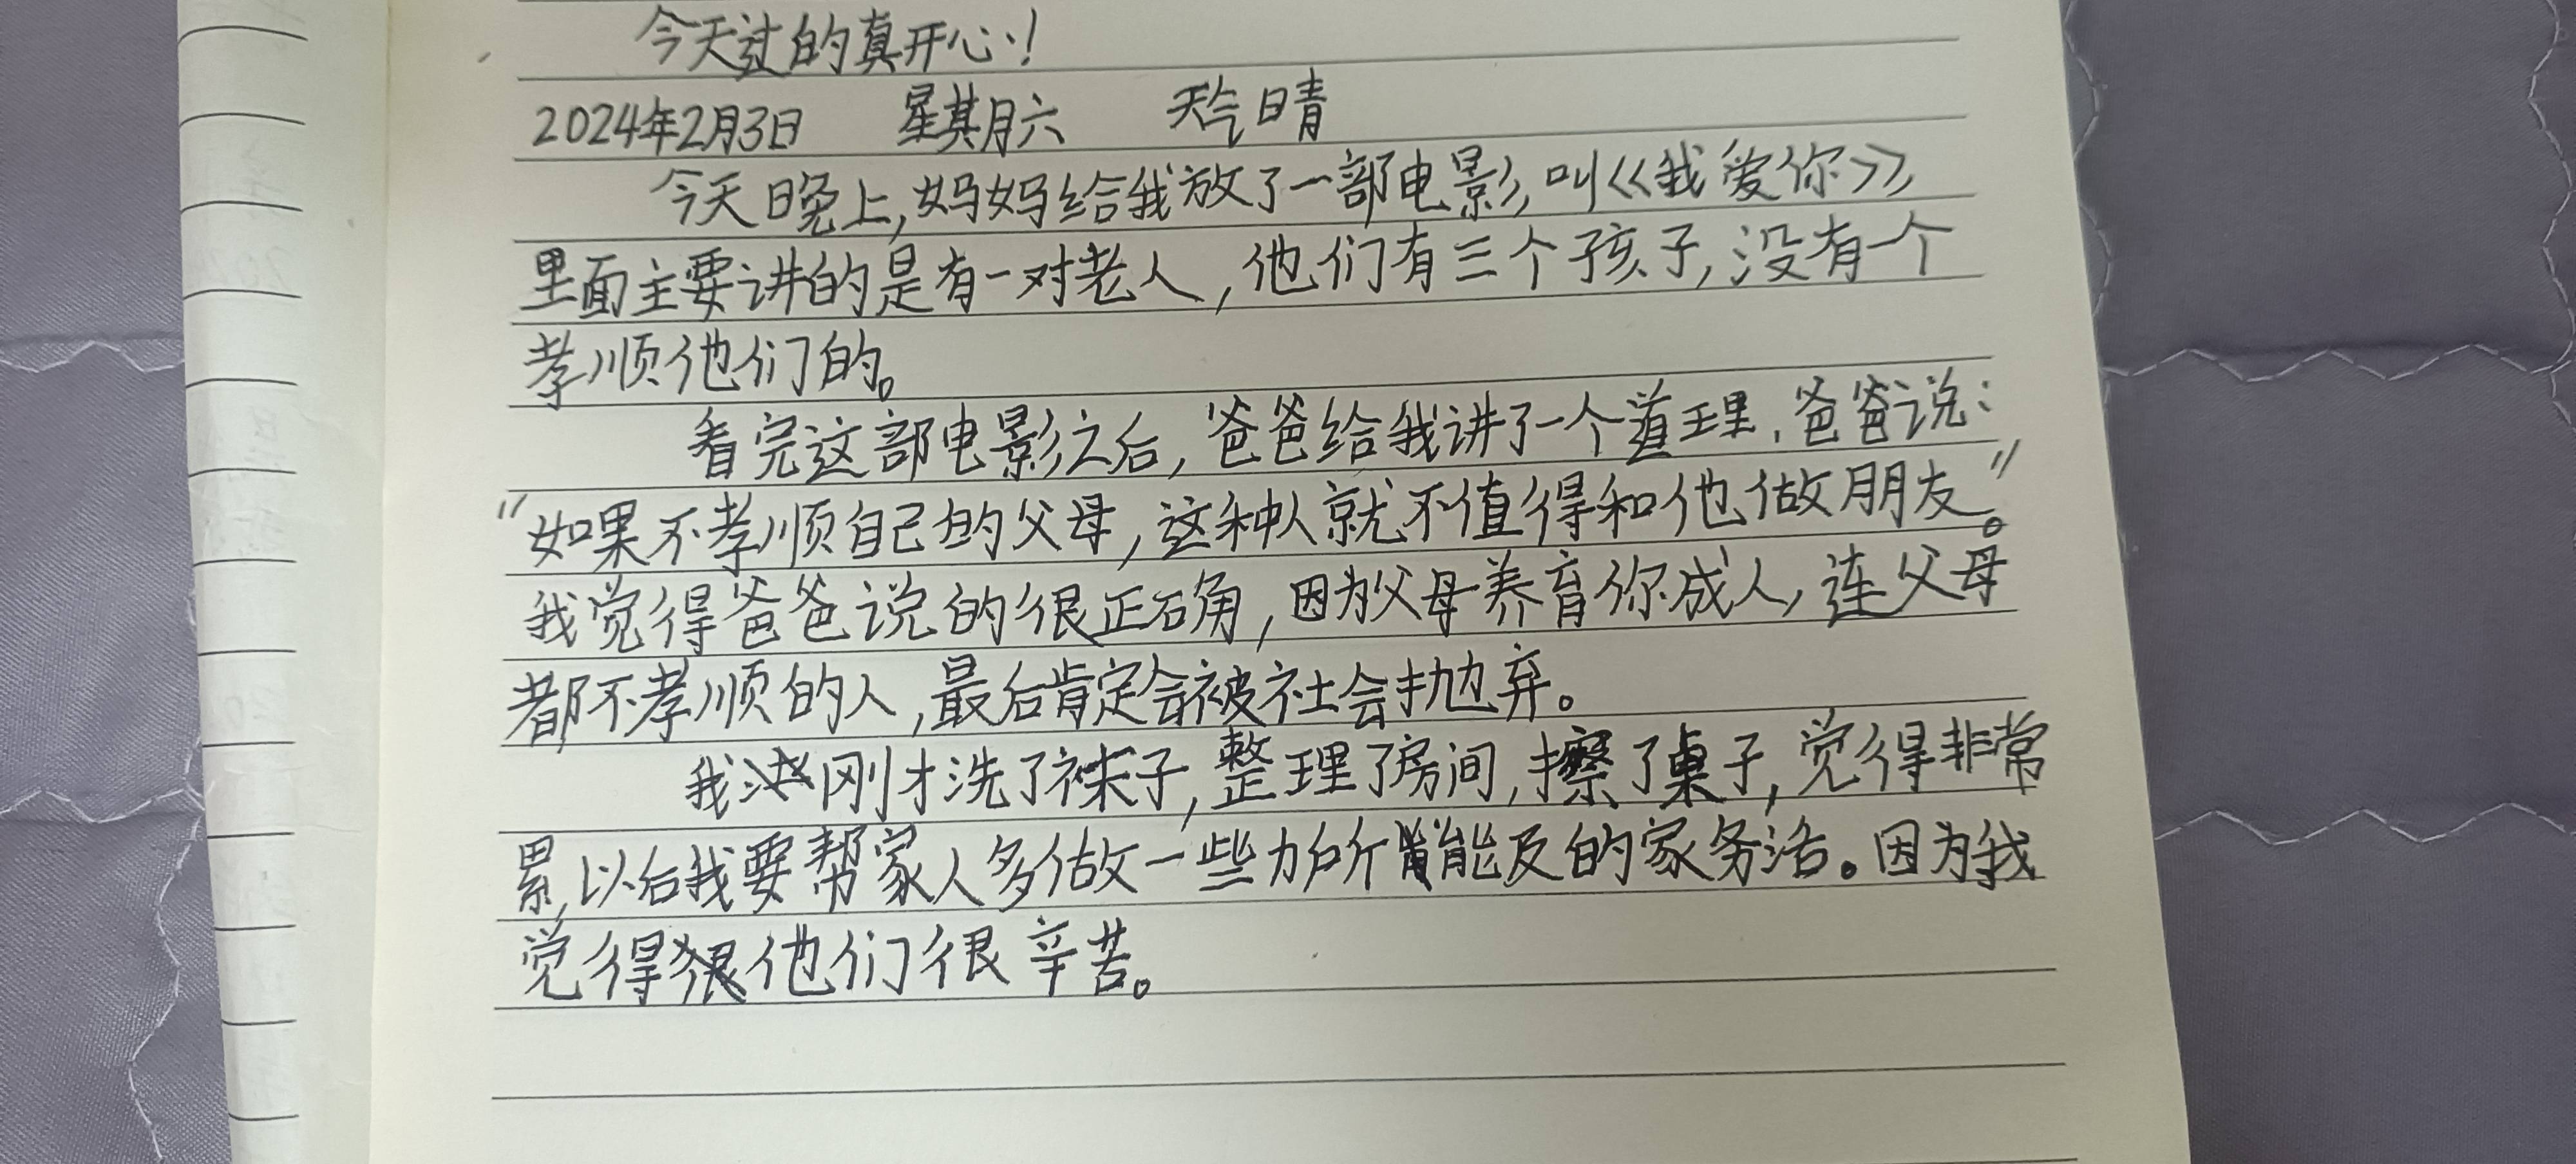 今天过的真开心！
2024年2月3日 星期六 天气晴
今天晚上,妈妈给我放了一部电影,叫《我爱你》,
里面主要讲的是有一对老人,他们有三个孩子,没有一个
孝顺他们的。
看完这部电影之后,爸爸给我讲了一个道理,爸爸说:
"如果不孝顺自己的父母,这种人就不值得和他做朋友"。
我觉得爸爸说的很正确,因为父母养育你成人,连父母
都不孝顺的人,最后肯定会被社会抛弃。
我刚才洗了袜子,整理了房间,擦了桌子,觉得非常
累,以后我要帮家人多做一些力所能及的家务活。因为我
觉得他们很辛苦。